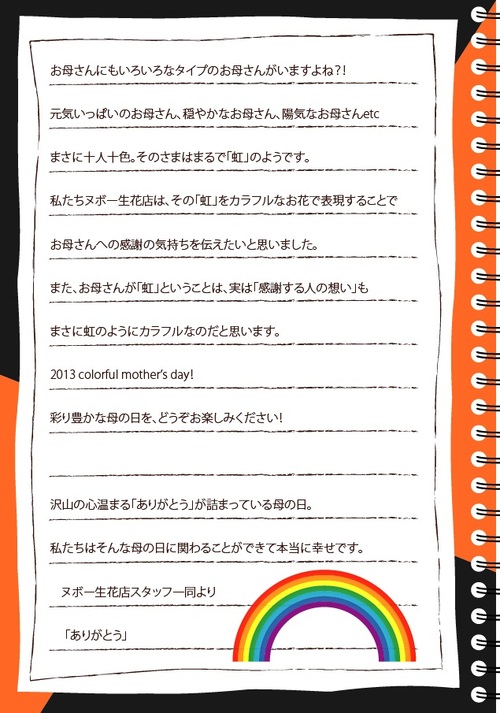 お母さんにもいろいろなタイプのお母さんがいますよね?!
元気いっぱいのお母さん、穏やかなお母さん、陽気なお母さんetc
まさに十人十色。そのさまはまるで「虹」のようです。
私たちヌボー生花店は、その「虹」をカラフルなお花で表現することで
お母さんへの感謝の気持ちを伝えたいと思いました。
また、お母さんが「虹」ということは、実は「感謝する人の想い」も
まさに虹のようにカラフルなのだと思います。
2013 colorful mother's day!
彩り豊かな母の日を、どうぞお楽しみください!
沢山の心温まる「ありがとう」が詰まっている母の日。
私たちはそんな母の日に関わることができて本当に幸せです。
ヌボー生花店スタッフ一同より
「ありがとう」